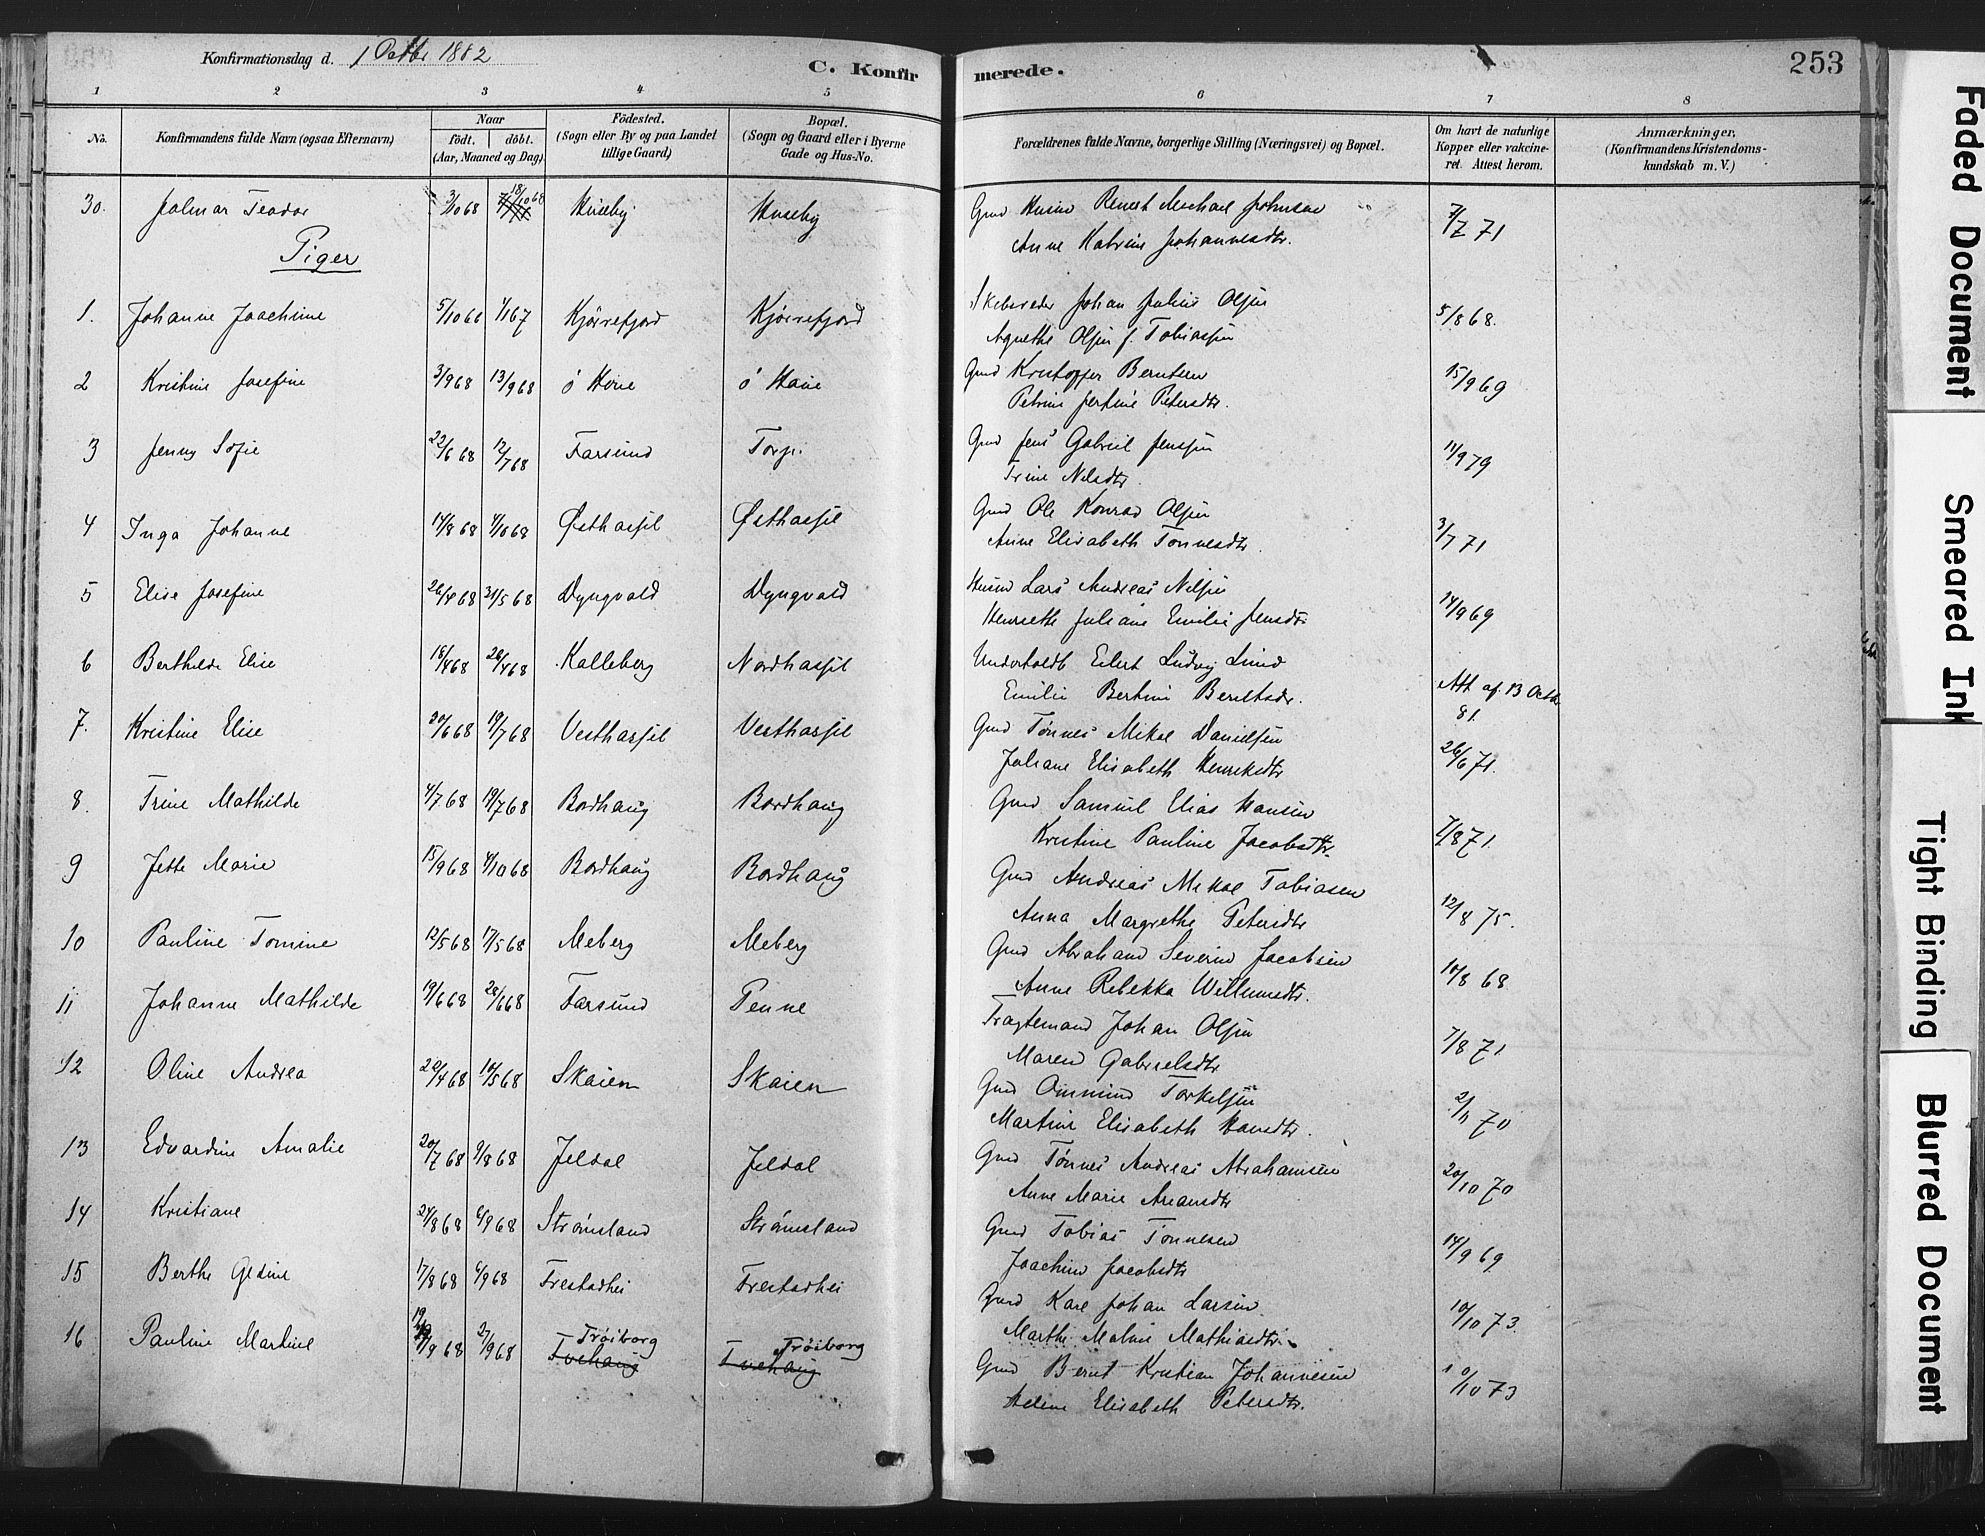 Konfirmationsdag d. 1 Octbr 1882
C. Konfirmerede.
253
1 2 3 4 5 6 7 8
No. Konfirmandens fulde Navn (ogsaa Efternavn) Naar født. døbt. (Aar, Maaned og Dag) Fødested. (Sogn eller By og paa Landet tillige Gaard) Bopæl. (Sogn og Gaard eller i Byerne Gade og Hus-No. Forældrenes fulde Navne, borgerlige Stilling (Næringsvei) og Bopæl. Om havt de naturlige Kopper eller vakcineret. Attest herom. Anmærkninger, (Konfirmandens Kristendomskundskab m. V.)
30. Hjalmar Teodor 3/10 68 18/10 68 Huseby Huseby Gmd Michael Johnsen 7/7 71
Anne Katrine Johannesdtr.
Piger
1. Johanne Joachime 5/10 66 1/1 67 Kjørrefjord Kjørrefjord Skibsreder Johan Julius Olsen 5/8 68.
Agnethe Olsen f. Tobiassen
2 Kristine Josefine 3/9 68 13/9 68 Ø Hoie Ø Hoie Gmd Kristoffer Berntsen 15/9 69
Petrine Petersdtr.
3 Jenny Sofie 22/6 68 12/7 68 Farsund Torp. Gmd Jens Gabriel Jenssen 11/9 79
Trine Nilsdtr.
4 Inga Johanne 14/8 68 4/10 68 Østhassel Østhassel Gmd Ole Konrad Olsen 3/7 71
Anne Elisabeth Tonnesdtr.
5 Elise Josefine 26/4 68 31/5 68 Dyngvold Dyngvold Husmd Lars Andreas Nilsen 14/9 69
Henriette Juliane Emilie Jensdtr
6 Berthilde Elise 18/4 68 26/4 68 Kalleberg Nordhassel Underholdb Eilert Ludvig Lund Att af. 13 Octbr 81.
Emilie Bertine Berntsdr.
7. Kristine Elise 30/6 68 19/7 68 Vesthassel Vesthassel Gmd Tønnes Mikal Danielsen 26/6 71.
Juliane Elisabeth Henriksdtr
8. Trine Mathilde 4/7 68 19/7 68 Bordhaug Bordhaug Gmd Samuel Elias Hansen 7/8 71.
Kristine Pauline Jacobsdtr.
9 Jette Marie 15/9 68 4/10 68 Bordhaug Bordhaug Gmd Andreas Mikal Tobiasen 12/8 75.
Anna Margrethe Petersdtr
10 Pauline Tomine 12/5 68 17/5 68 Meberg Meberg Gmd Abraham Severin Jacobsen 10/8 68
Anne Rebekka Willumsdtr.
11 Johanne Mathilde 19/6 68 28/6 68 Farsund Penne Fragtemand Johan Olsen 7/8 71
Maren Gabrielsdtr
12 Oline Andrea 20/4 68 10/5 68 Skaien Skaien Gmd Ommund Torkelsen 2/11 70
Martine Elisabeth Hansdtr.
13 Edvardine Amalie 20/7 68 9/8 68 Jeldal Jeldal Gmd Tønnes Andreas Abrahamsen 20/10 70
Anne Marie
14 Kristiane 24/8 68 6/9 68 Strømsland Strømsland Gmd Tobias Tønnesen 14/9 69
Joachime Jacobsdtr
15 Berthe Gesine 17/8 68 6/9 68 Frestadhei Frestadhei Gmd Karl Johan Larsen 10/10 73
Marthe Malene Mathiasdtr.
16 Pauline Martine 19/9 68 27/9 68 Trøiborg Tvehaug Trøiborg Tvehaug Gmd Bernt Kristian Johannesen 10/10 73
Helene Elisabeth Petersdtr.
Faded Document
Smeared Ink
Tight Binding
Blurred Document